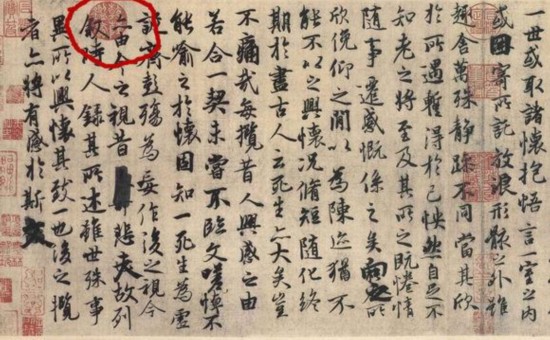 一世或取諸懷抱悟言一室之内
或因寄所託放浪形骸之外雖
趣舍萬殊静躁不同當其欣
於所遇蹔得於己怏然自足不
知老之将至及其所之既惓情
隨事遷感慨係之矣向之所
欣俛仰之閒以為陳迹猶不
能不以之興懷況脩短隨化終
期於盡古人云死生亦大矣豈
不痛哉每攬昔人興感之由
若合一契未嘗不臨文嗟悼不
能喻之於懷固知一死生為虛
誕齊彭殤為妄作後之視今
亦由今之視昔悲夫故列
敘時人錄其所述雖世殊事
異所以興懷其致一也後之攬
者亦將有感於斯文